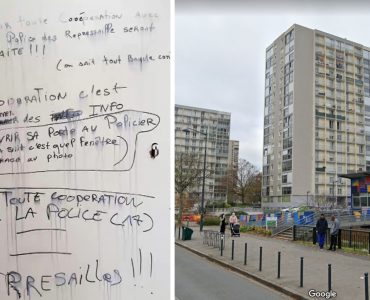 toute Coopération avec
Police des Represaille seront
AITE !!!
(on sait tout
OOPERATION c'est
des INFO
VRIR SA PORTE AU Policier
suit c'est quel fenêtre
au photo
TOUTE COOPERATION
LA POLICE (17)
RRESAILLES !!!
Google